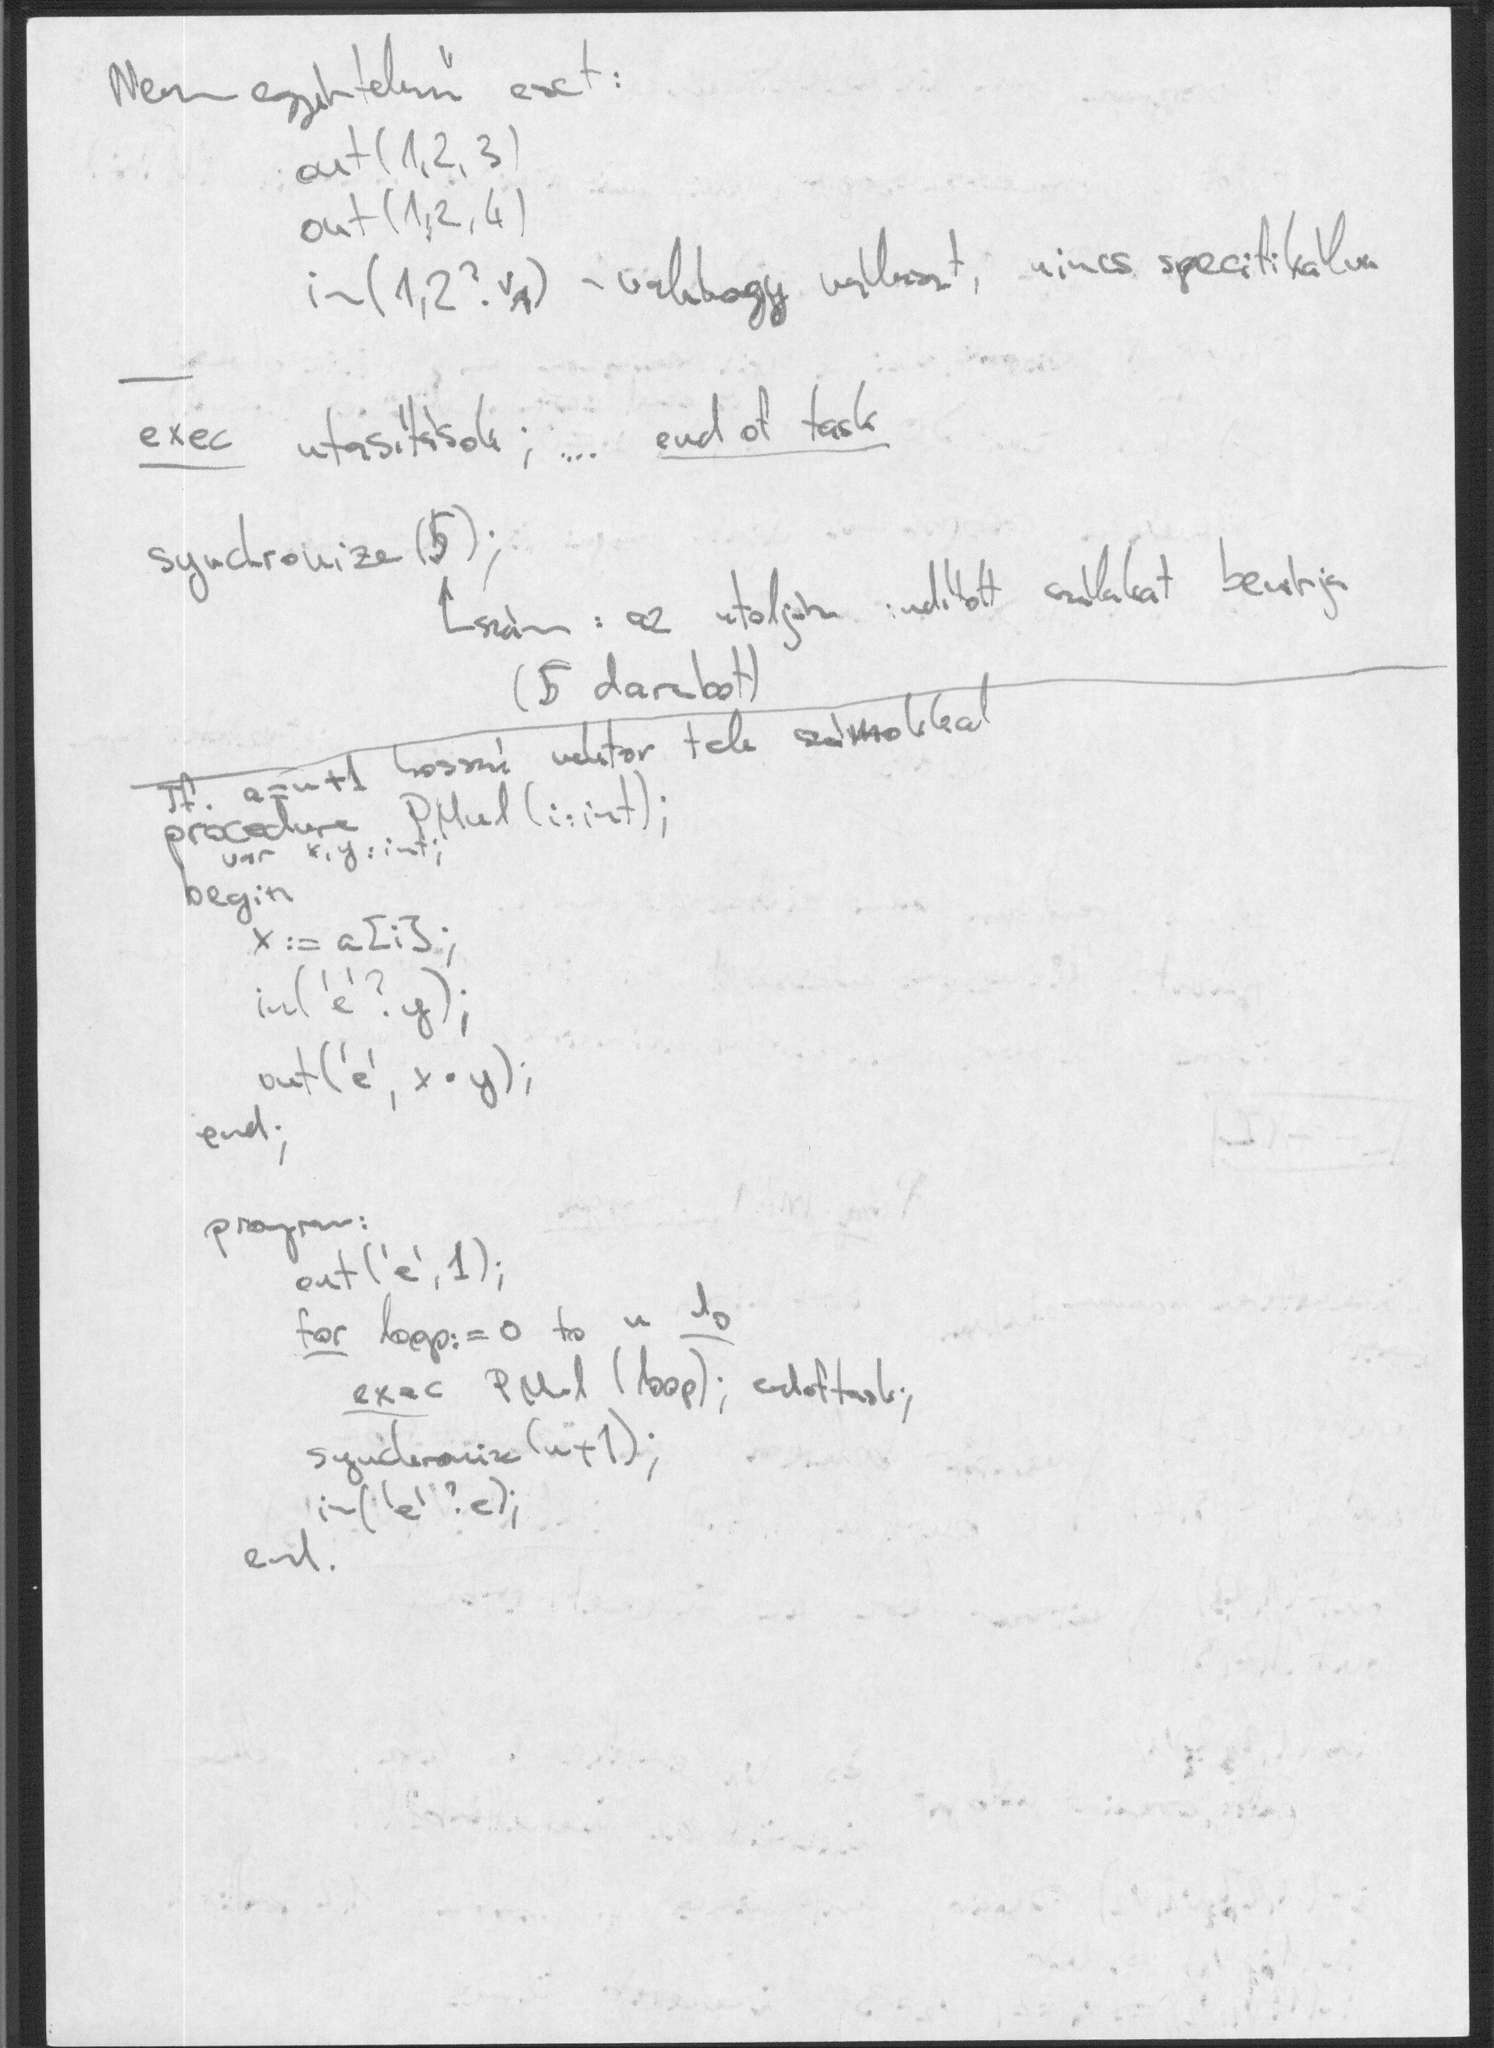 Nem egyértelmű eset:
out(1,2,3)
out(1,2,4)
in(1,2?v) - valahogy választ, nincs specifikálva
exec utasítások; .... end of task
synchronize(5);
szám: az utoljára indított szálakat bevárja
(5 darabot)
Tf. a=n+1 hosszú vektor tele számokkal
procedure PMul(i:int);
var x,y:int;
begin
x:=a[i];
in('e'?y);
out('e', x•y);
end;
program:
out('e',1);
for loop:=0 to n do
exec PMul(loop); endoftask;
synchronize(n+1);
in('e'?e);
end.